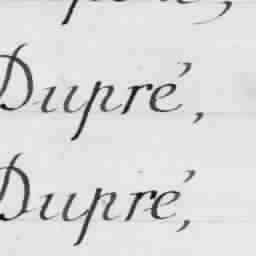 Dupré,
Dupré,